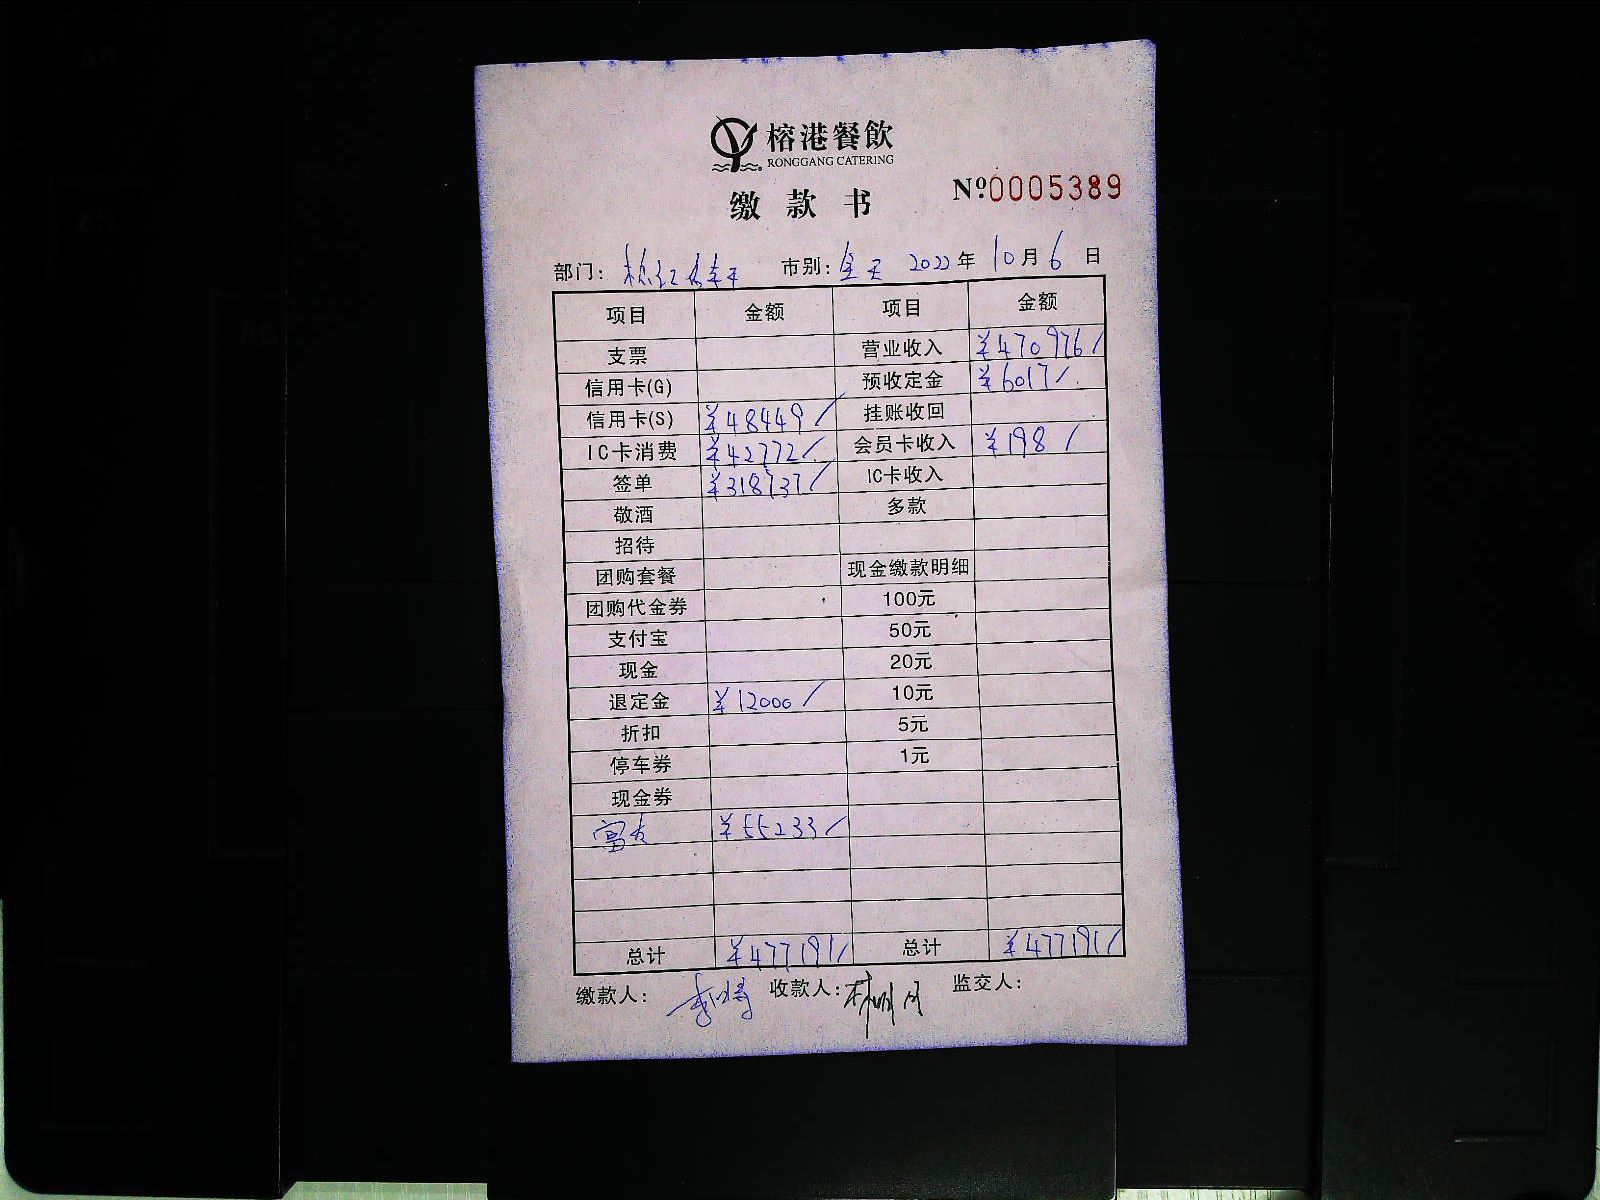 榕港餐飲
RONGGANG CATERING
缴款书 Nº.0005389
部门: 市别: 全天 2022年10月6日
项目 金额 项目 金额
支票 营业收入 ¥470976/
信用卡(G) 预收定金 ¥6017/
信用卡(S) ¥48449/ 挂账收回
IC卡消费 ¥42772/ 会员卡收入 ¥198/
签单 ¥318737/ IC卡收入
敬酒 多款
招待
团购套餐 现金缴款明细
团购代金券 100元
支付宝 50元
现金 20元
退定金 ¥12000/ 10元
折扣 5元
停车券 1元
现金券
富友 ¥55233/
总计 ¥477191/ 总计 ¥477191/
缴款人: 收款人: 监交人: